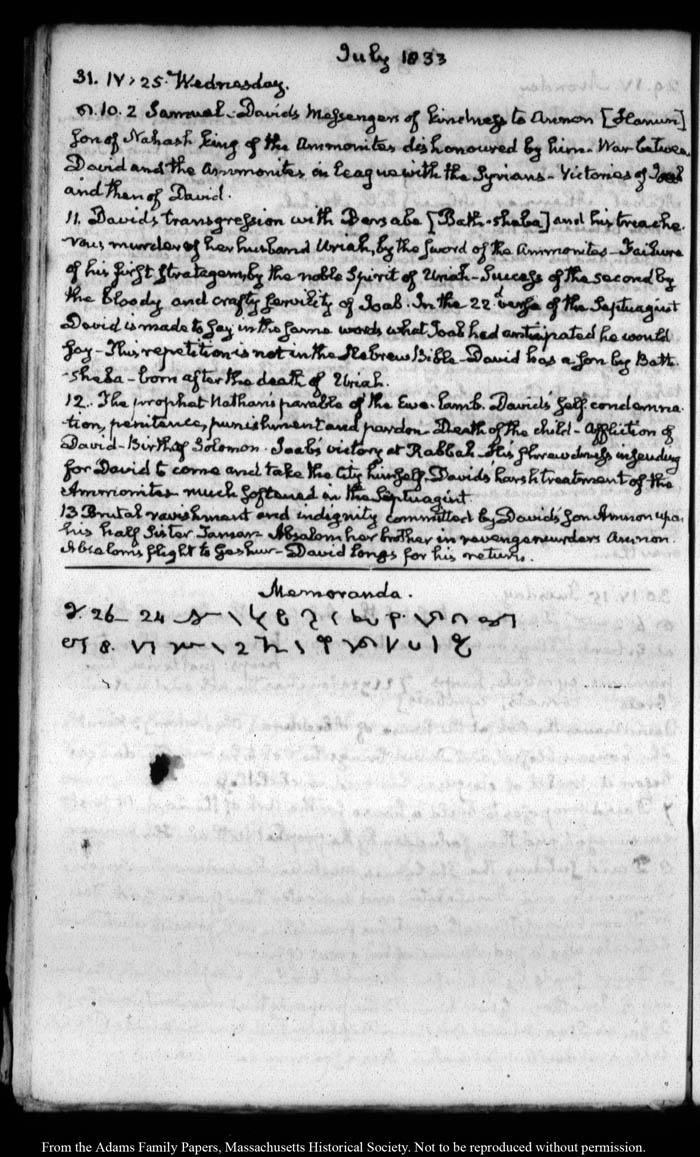 July 1833
31. IV: 25. Wednesday.
10. 2 Samuel. Davids Messengers of kindness to Annon [Hanun]
Son of Nahash king of the Ammonites dishonoured by him. War between
David and the Ammonites in league with the Syrians - Victories of Joab
and then of David.
11. David's transgression with Bersabe [Bath-sheba] and his treache-
rous murder of her husband Uriah, by the sword of the Ammonites - Failure
of his first stratagem, by the noble Spirit of Uriah - Success of the second by
the bloody and crafty servility of Joab. In the 22d verse of the Septuagint
David is made to say in the same words what Joab had anticipated he would
say - This repetition is not in the Hebrew Bible - David has a son by Bath-
-sheba - born after the death of Uriah.
12. The prophet Nathan's parable of the Ewe-lamb. Davids self condemna-
-tion, penitence, punishment and pardon - Death of the child - Affliction of
David - Birth of Solomon - Joab's victory at Rabbah - His shrewdness in sending
for David to come and take the City himself. Davids harsh treatment of the
Ammonites much softened in the Septuagint.
13 Brutal ravishment and indignity committed by Davids Son Amnon upon
his half Sister Tamar - Absalom her brother in revenge murders Amnon.
Absalom's flight to Geshur - David longs for his return.
Memoranda.
26- 24
8.
From the Adams Family Papers, Massachusetts Historical Society. Not to be reproduced without permission.